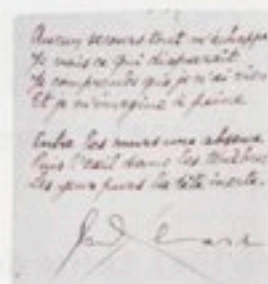 Aucun secours tout m'échappe
Je vais ce qui disparaît
Je comprends que je n'ai rien
Et je m'imagine à peine
Entre les murs une absence
Puis l'exil dans les ténèbres
Les yeux purs la tête inerte.